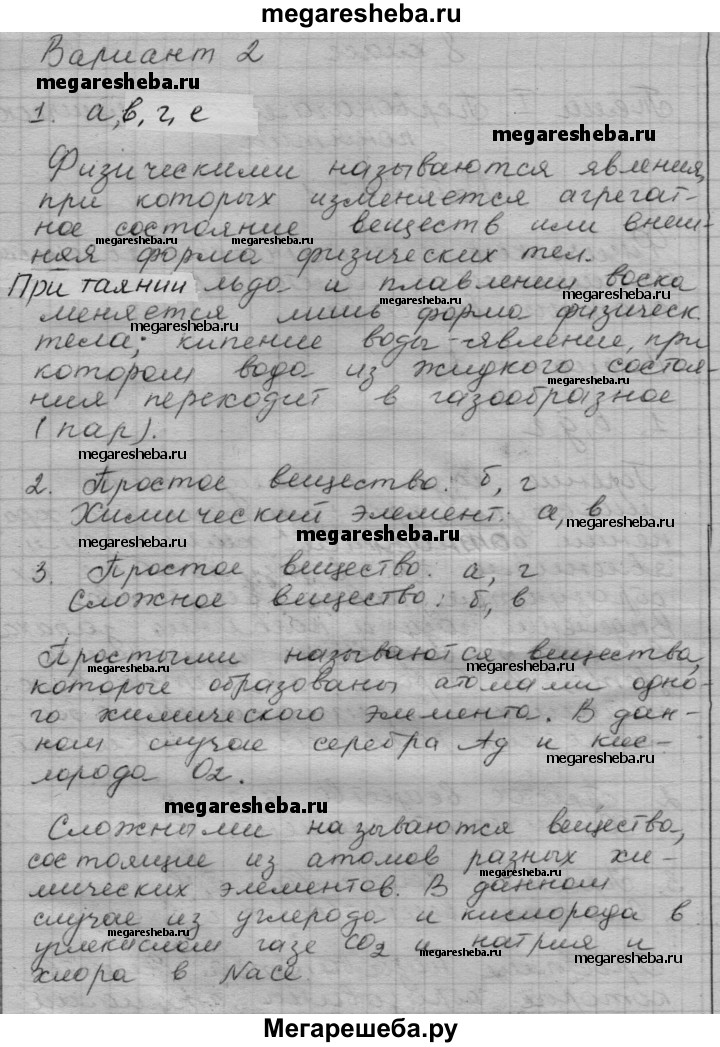 megaresheba.ru
Вариант 2
megaresheba.ru
1. а,в,г,е
megaresheba.ru
Физическими называются явления,
при которых изменяется агрегат-
ное состояние веществ или внеш-
megaresheba.ru megaresheba.ru
няя форма физических тел.
megaresheba.ru
При таянии льда и плавлении воска
megaresheba.ru
меняется лишь форма физическ.
megaresheba.ru
тела; кипение воды - явление, при
котором вода из жидкого состоя-
megaresheba.ru
ния переходит в газообразное
(пар).
megaresheba.ru
2. Простое вещество: б, г
Химический элемент: а, в
megaresheba.ru
megaresheba.ru
3. Простое вещество: а, г
Сложное вещество: б, в
Простыми называются вещества,
megaresheba.ru megaresheba.ru
которые образованы атомами одно-
го химического элемента. В дан-
ном случае серебра Ag и кис-
megaresheba.ru
лорода O2.
megaresheba.ru
Сложными называются вещества,
состоящие из атомов разных хи-
мических элементов. В данном
megaresheba.ru
случае из углерода и кислорода в
углекислом газе CO2 и натрия и
megaresheba.ru
хлора в NaCl.
Мегарешеба.ру